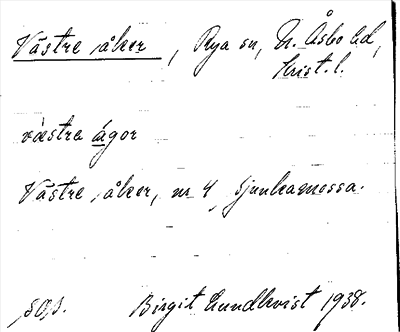 Västre åker, Rya sn, N. Åsbo hd,
Krist. l.
västra ågor
Västre åker, nr 4 Sjunkamossa.
Birgit Lundkvist 1938.